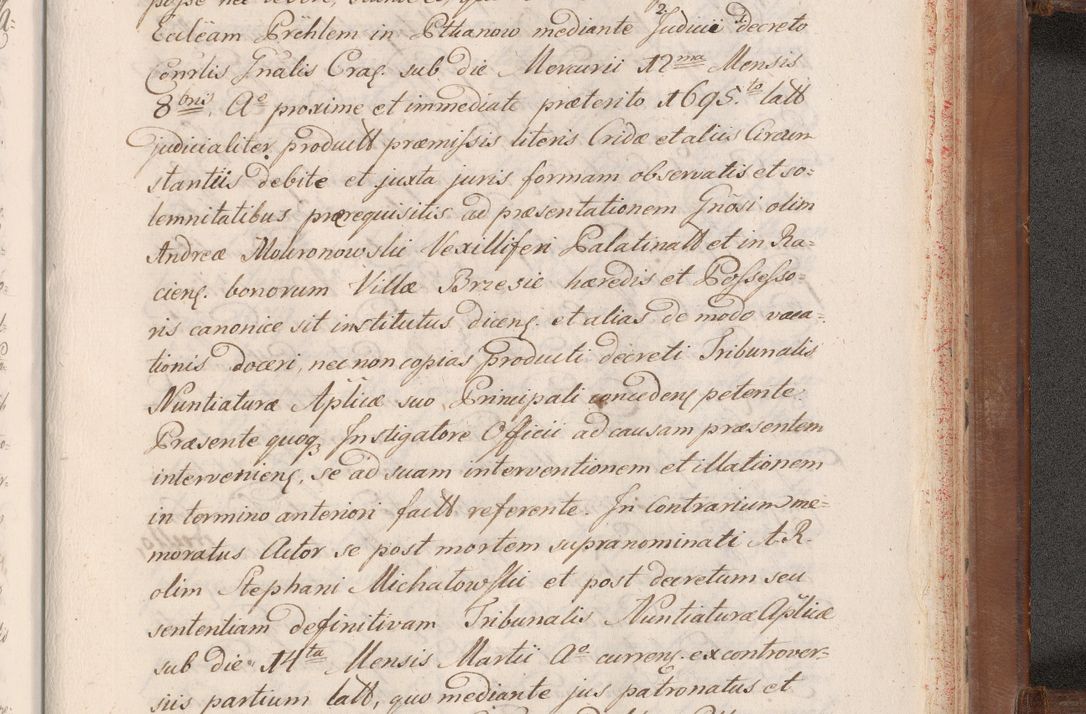 Eccleam Pchlem in Pthanow mediante Judicii decreto
Consrlis Gnalis Crac. sub die Mercurii 12ma Mensis
8bris. Ao proxime et immediate præterito 1695.to latt
judicialiter productt præmissis literis Cridæ et aliis Circum
stantiis debite et juxta juris formam observatis et so-
lemnitatibus prærequisitis ad præsentationem Gnosi olim
Andreæ Mouronowskii Vexilliferi Palatinatt et in Ra-
cienc. bonorum Villæ Brzesie hæredis et Possesso-
ris canonice sit institutus dicenc. et alias de modo vaca-
tionis doceri, nec non copias producti decreti Tribunalis
Nuntiaturæ Aplicæ suo Principali concedenc petente.
Præsente quoq3 Instigatore Officii ad causam præsentem
intervenienc, se ad suam interventionem et illationem
in termino anteriori factt referente. In contrarium me-
moratus Actor se post mortem supranominati A.R.
olim Stephani Michałowskii et post decretum seu
sententiam definitivam Tribunalis Nuntiaturæ Aplicæ
sub die 14ta Mensis Martii Ao currenc. ex controver-
siis partium latt, quo mediante jus patronatus et